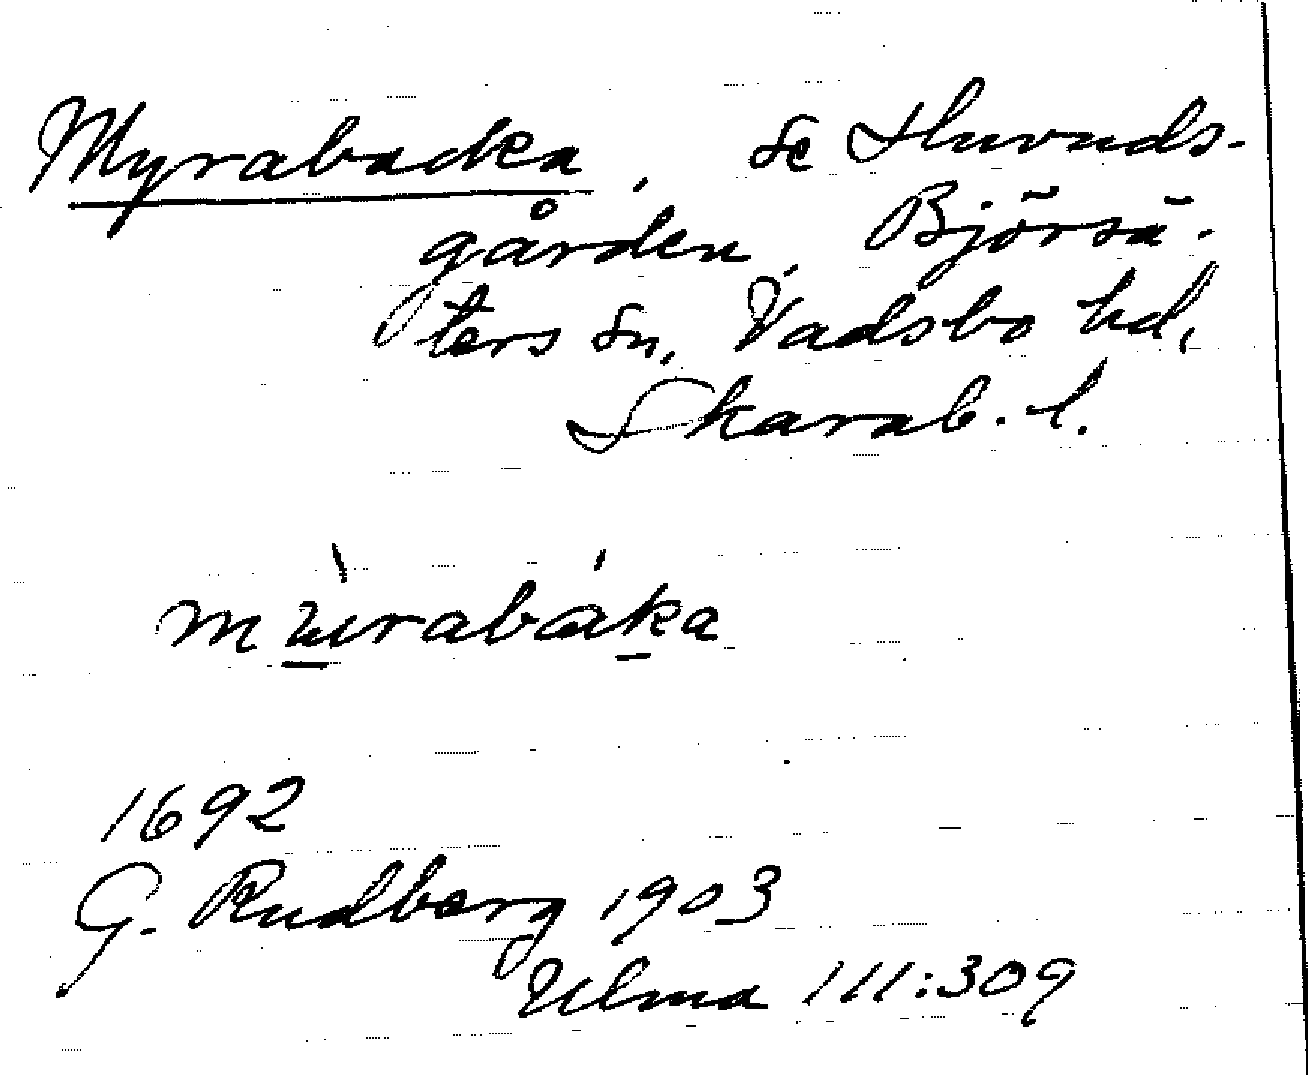 Myrabacka, se Huvuds-
gården, Björsä-
ters sn, Vadsbo hd,
Skarab. l.
mùrabáka
1692
G. Rudberg 1903
Ulma 111:309